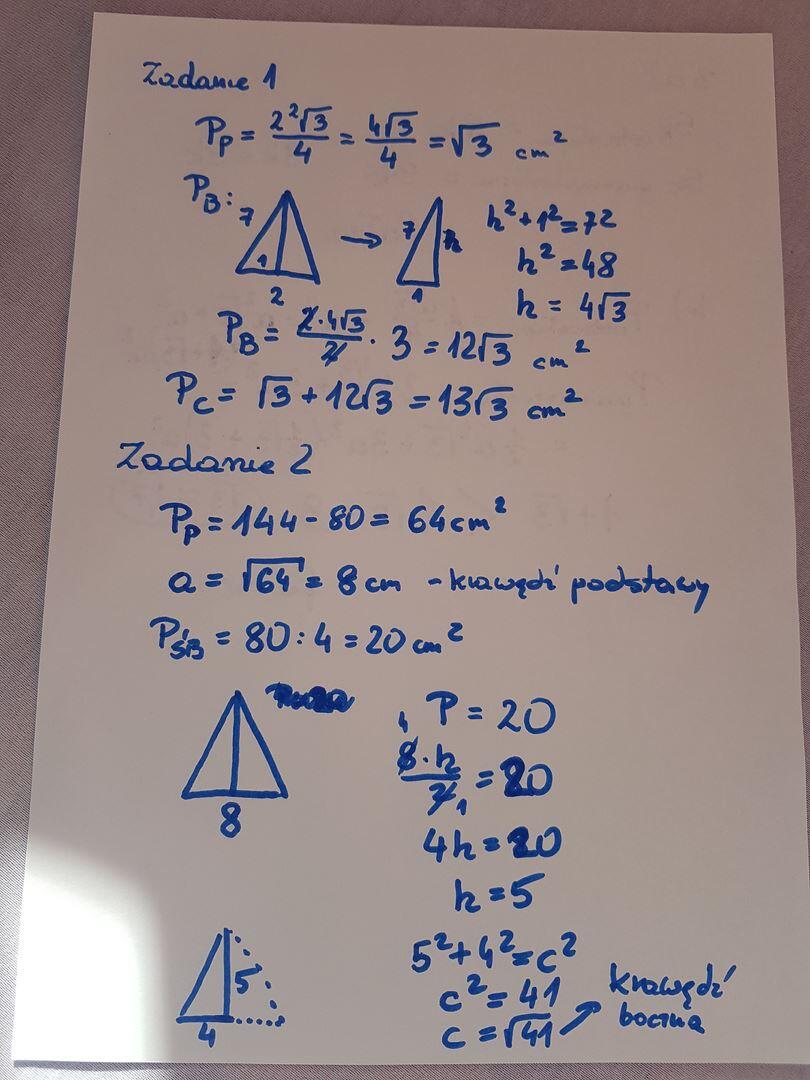 Zadanie 1
Pp = 2²√3/4 = 4√3/4 = √3 cm²
PB:
7
1
2
→
7
h
1
h² + 1² = 72
h² = 48
h = 4√3
PB = 2·4√3/2 · 3 = 12√3 cm²
Pc = √3 + 12√3 = 13√3 cm²
Zadanie 2
Pp = 144 - 80 = 64 cm²
a = √64 = 8 cm - krawędź podstawy
PŚB = 80 : 4 = 20 cm²
8
P = 20
4 8·h/2 1 = 20
4h = 20
h = 5
5
4
5² + 4² = c²
c² = 41
c = √41 → krawędź boczna